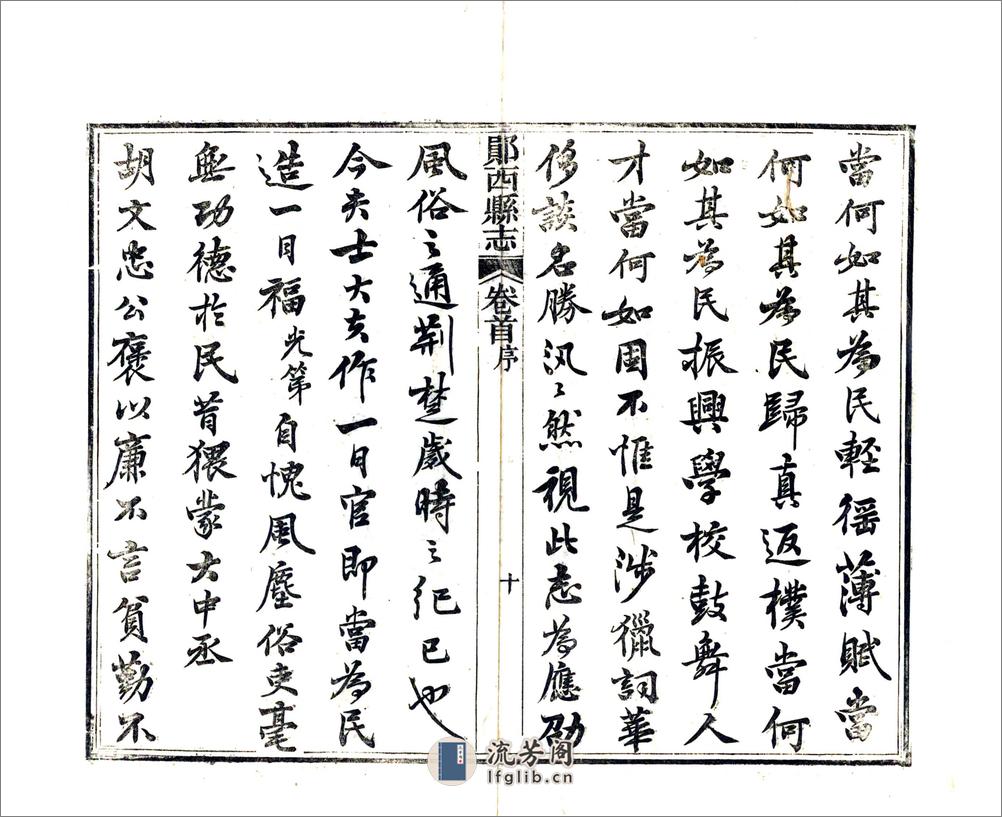 當何如其為民輕徭薄賦當
何如其為民歸真返樸當何
如其為民振興學校鼓舞人
才當何如固不惟是涉獵詞華
侈談名勝汎〻然視此志為應酬
鄖西縣志
卷首序
十
風俗之通荊楚歲時之紀已也
今夫士大夫作一日官即當為民
造一日福光第自愧風塵俗吏毫
無功德於民昔猥蒙大中丞
胡文忠公褒以廉不言貧勤不
流芳阁
lfglib.cn